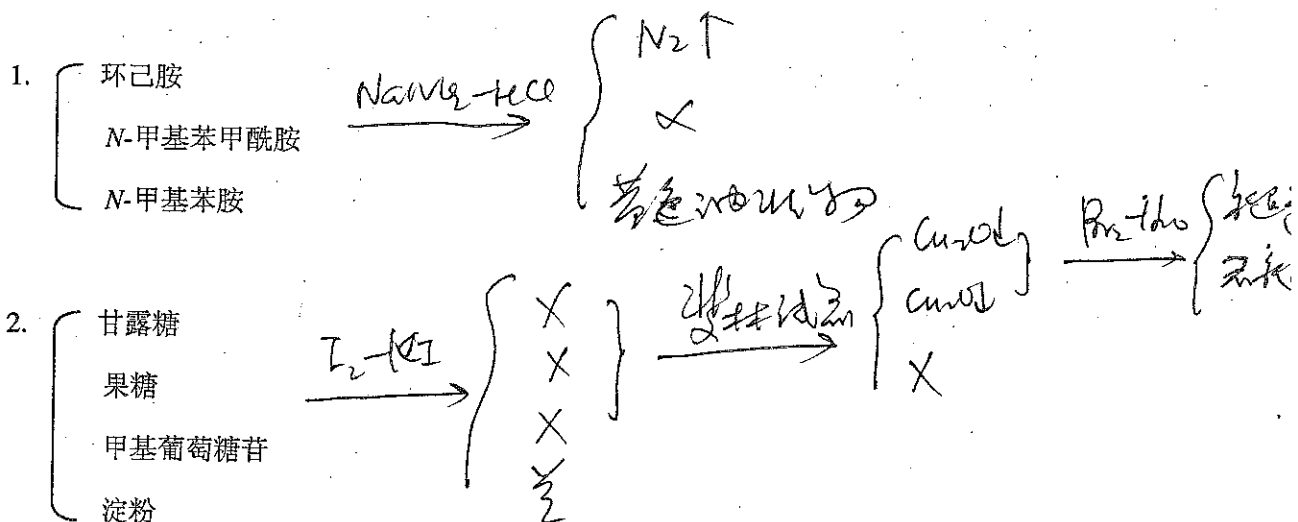 1. 环己胺
N-甲基苯甲酰胺
N-甲基苯胺
NaNO2-HCl
N2↑
X
黄色油状物
2. 甘露糖
果糖
甲基葡萄糖苷
淀粉
I2-KI
X
X
X
兰
斐林试剂
Cu2O↓
Cu2O↓
X
Br2-H2O